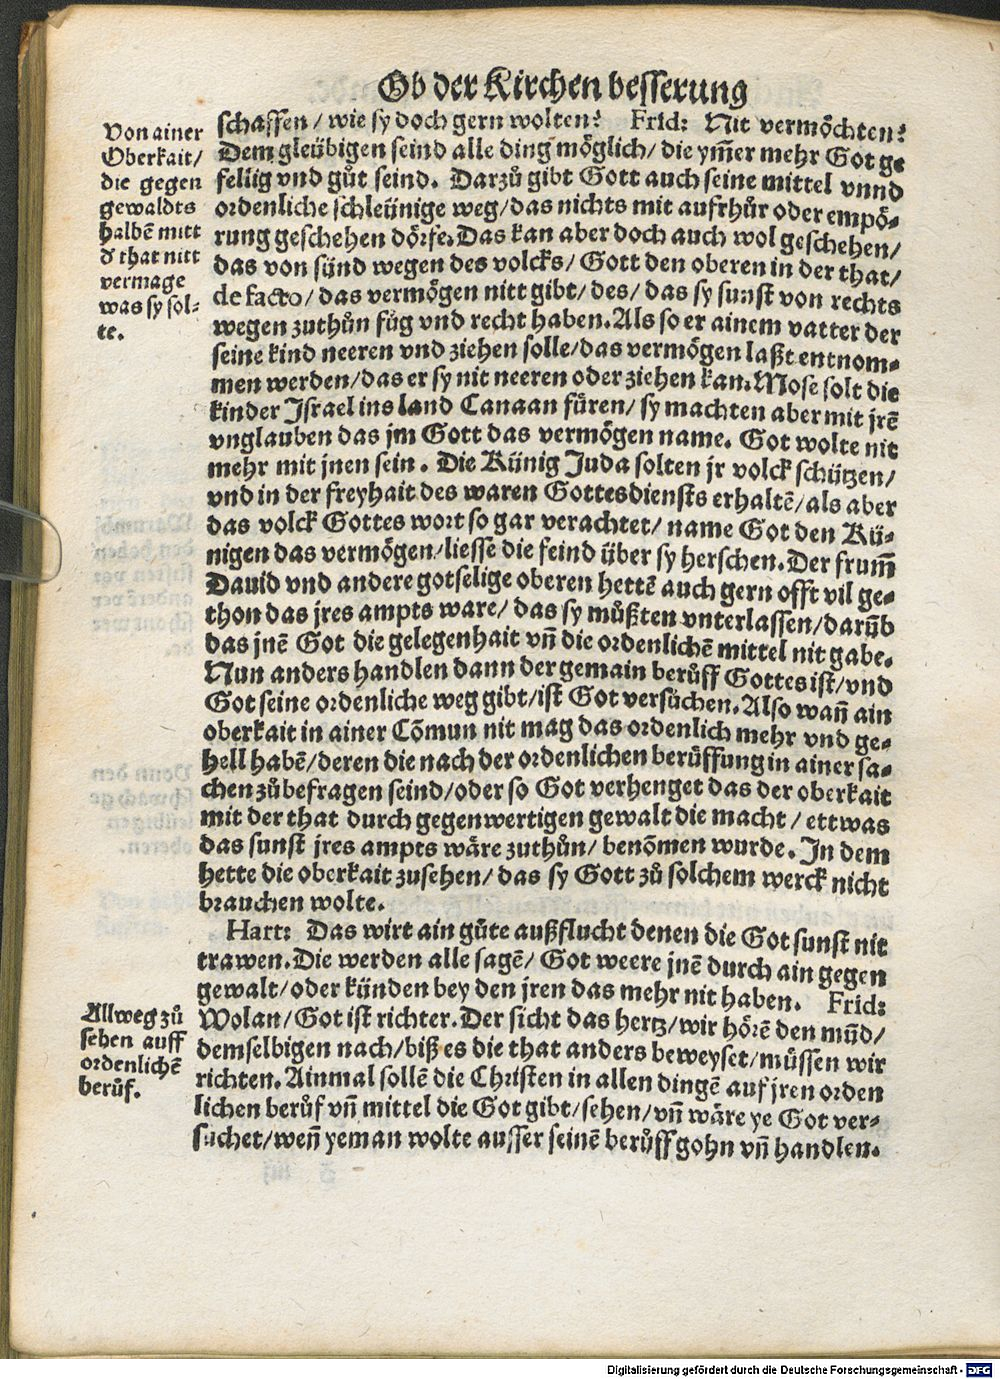 Ob der Kirchen besserung
Von ainer
Oberkait/
die gegen
gewaldts
halbẽ mitt
d' that nitt
vermage
was sy sol-
te.
schaffen/ wie sy doch gern wolten? Frid: Nit vermöchten?
Dem gleübigen seind alle ding möglich/ die ym̃er mehr Got ge
fellig vnd gůt seind. Darzů gibt Gott auch seine mittel vnnd
ordenliche schleünige weg/ das nichts mit aufrhůr oder empö-
rung geschehen dörfe. Das kan aber doch auch wol geschehen/
das von sünd wegen des volcks/ Gott den oberen in der that/
de facto/ das vermögen nitt gibt/ des/ das sy sunst von rechts
wegen zuthůn fůg vnd recht haben. Als so er ainem vatter der
seine kind neeren vnd ziehen solle/ das vermögen laßt entnom-
men werden/ das er sy nit neeren oder ziehen kan. Mose solt die
kinder Israel ins land Canaan füren/ sy machten aber mit jrẽ
vnglauben das jm Gott das vermögen name. Got wolte nit
mehr mit jnen sein. Die Künig Juda solten jr volck schützen/
vnd in der freyhait des waren Gottesdiensts erhaltẽ/ als aber
das volck Gottes wort so gar verachtet/ name Got den Kü-
nigen das vermögen/ liesse die feind über sy herschen. Der frum̃
Dauid vnd andere gotselige oberen hettẽ auch gern offt vil ge-
thon das jres ampts ware/ das sy můßten vnterlassen/ darũb
das jnẽ Got die gelegenhait vñ die ordenlichẽ mittel nit gabe.
Nun anders handlen dann der gemain berůff Gottes ist/ vnd
Got seine ordenliche weg gibt/ ist Got versůchen. Also wañ ain
oberkait in ainer Cõmun nit mag das ordenlich mehr vnd ge-
hell habẽ/ deren die nach der ordenlichen berůffung in ainer sa-
chen zůbefragen seind/ oder so Got verhenget das der oberkait
mit der that durch gegenwertigen gewalt die macht/ ettwas
das sunst jres ampts wäre zuthůn/ benõmen wurde. In dem
hette die oberkait zusehen/ das sy Gott zů solchem werck nicht
brauchen wolte.
Hart: Das wirt ain gůte außflucht denen die Got sunst nit
trawen. Die werden alle sagẽ/ Got weere jnẽ durch ain gegen
gewalt/ oder künden bey den jren das mehr nit haben. Frid:
Wolan/ Got ist richter. Der sicht das hertz/ wir hörẽ den mũd/
demselbigen nach/ biß es die that anders beweyset/ müssen wir
richten. Ainmal sollẽ die Christen in allen dingẽ auf jren orden
lichen berůf vñ mittel die Got gibt/ sehen/ vñ wäre ye Got ver-
sůchet/ weñ yeman wolte ausser seinẽ berůff gohn vñ handlen.
Allweg zů
sehen auff
ordenlichẽ
berůf.
Digitalisierung gefördert durch die Deutsche Forschungsgemeinschaft - DFG